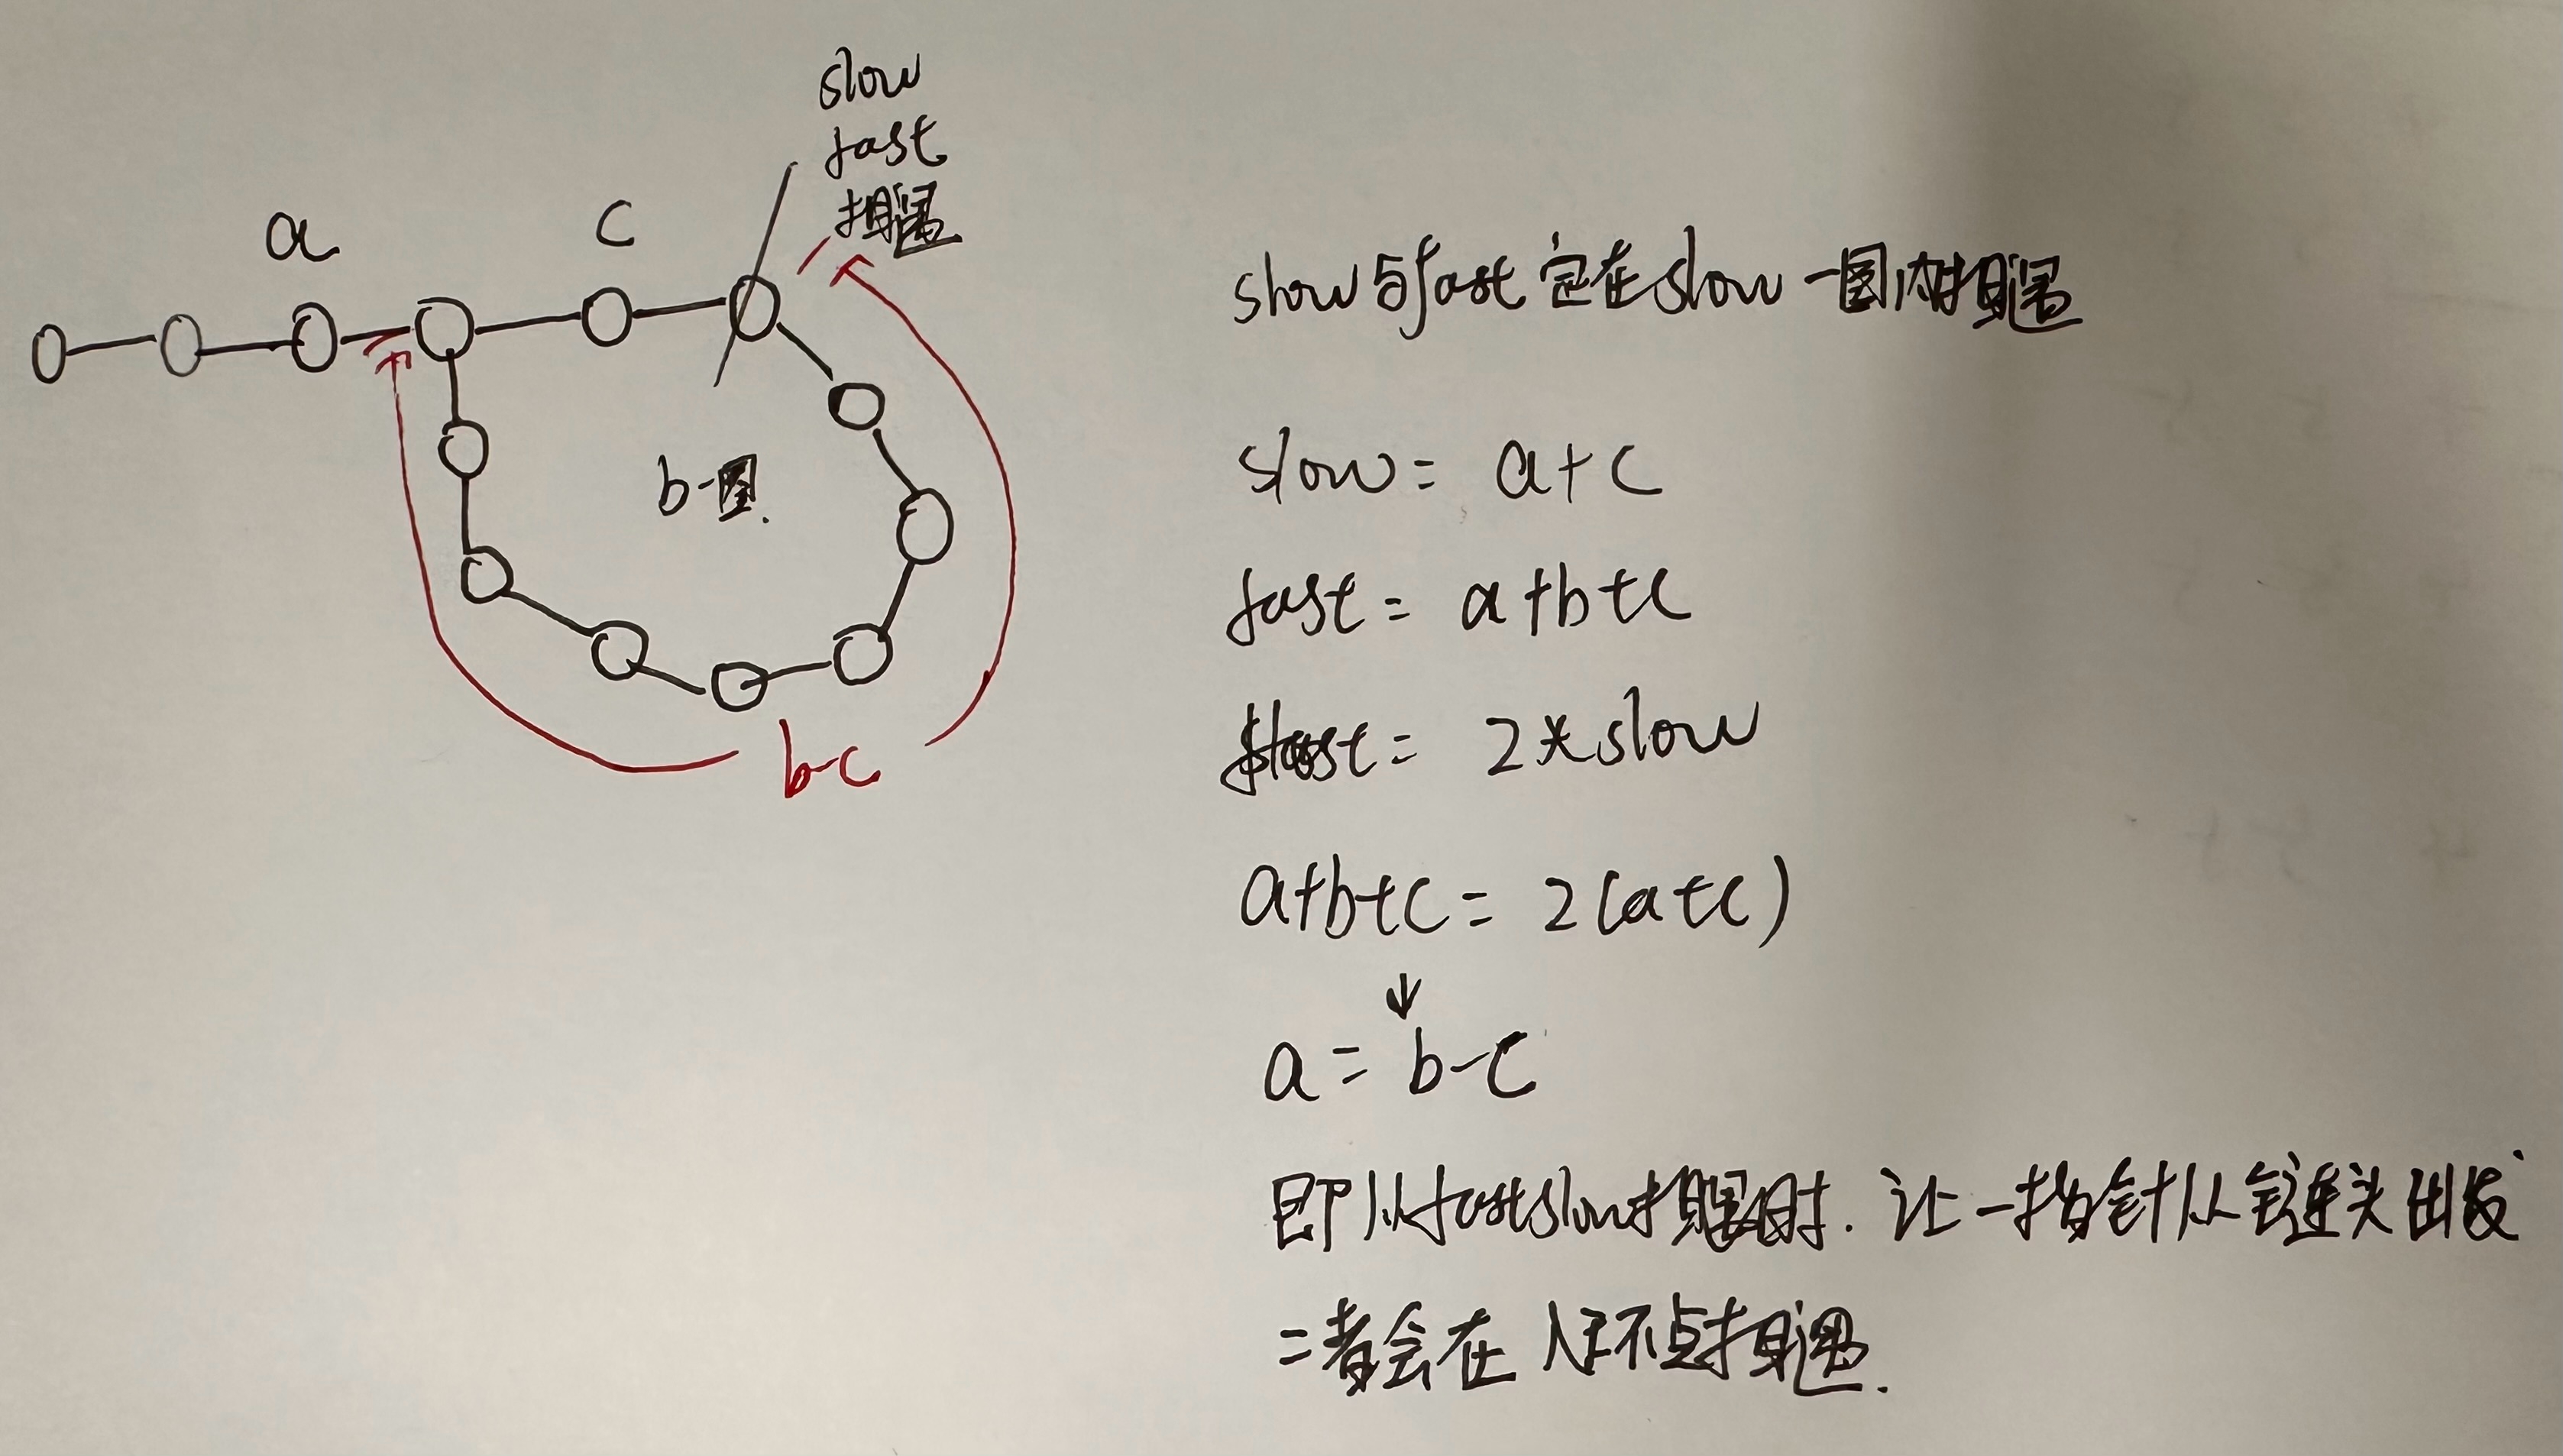 slow
fast
相遇
a
c
b一圈.
b-c
slow与fast 定在slow 一圈内相遇
slow = a+c
fast = a+b+c
fast = 2*slow
a+b+c = 2(a+c)
↓
a = b-c
即从fastslow相遇时. 让一指针从链头出发
二者会在入环点相遇.